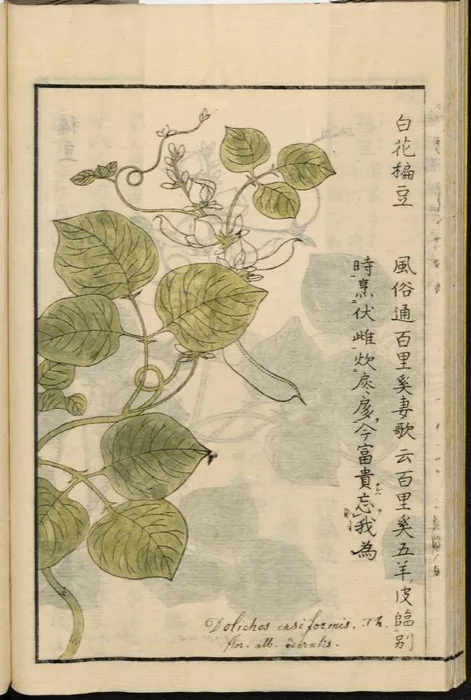 白花楄豆
風俗通百里奚妻歌云百里奚五羊皮臨别
時烹伏雌炊扊扅今富貴忘我為
Dolichos ensiformis. Th.
flor. alb.